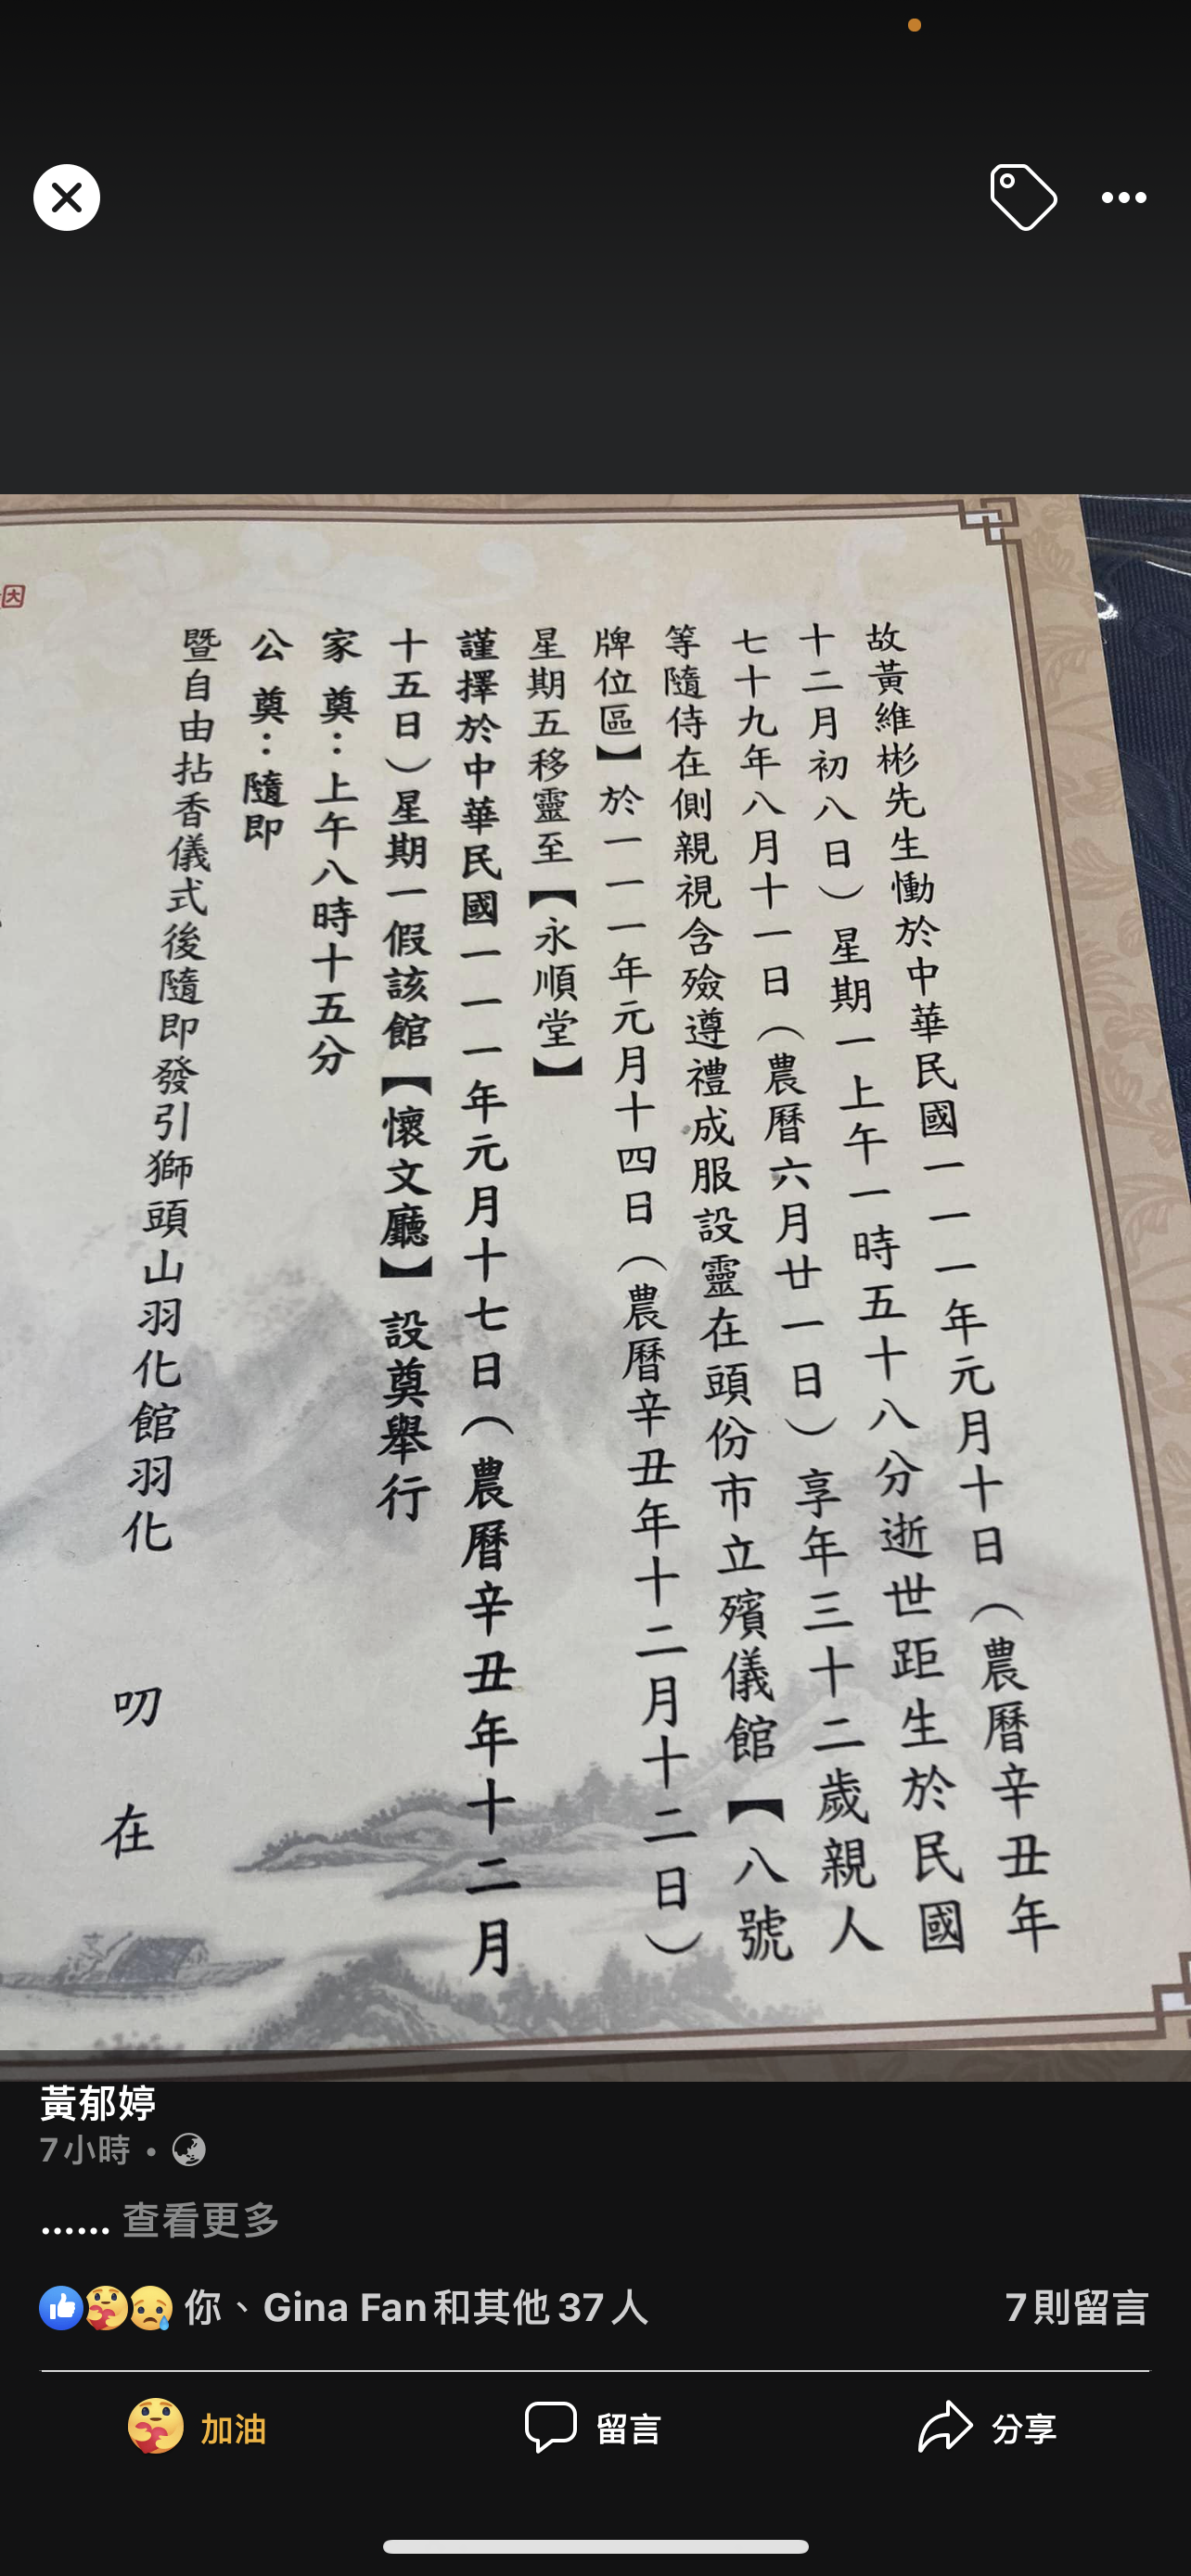 故黃維彬先生慟於中華民國一一一年元月十日（農曆辛丑年
十二月初八日）星期一上午一時五十八分逝世距生於民國
七十九年八月十一日（農曆六月廿一日）享年三十二歲親人
等隨侍在側親視含殮遵禮成服設靈在頭份市立殯儀館【八號
牌位區】於一一一年元月十四日（農曆辛丑年十二月十二日）
星期五移靈至【永順堂】
謹擇於中華民國一一一年元月十七日（農曆辛丑年十二月
十五日）星期一假該館【懷文廳】設奠舉行
家奠：上午八時十五分
公奠：隨即
暨自由拈香儀式後隨即發引獅頭山羽化館羽化
叨在
因
黃郁婷
7小時 •
...... 查看更多
你、Gina Fan和其他 37 人
7則留言
加油
留言
分享